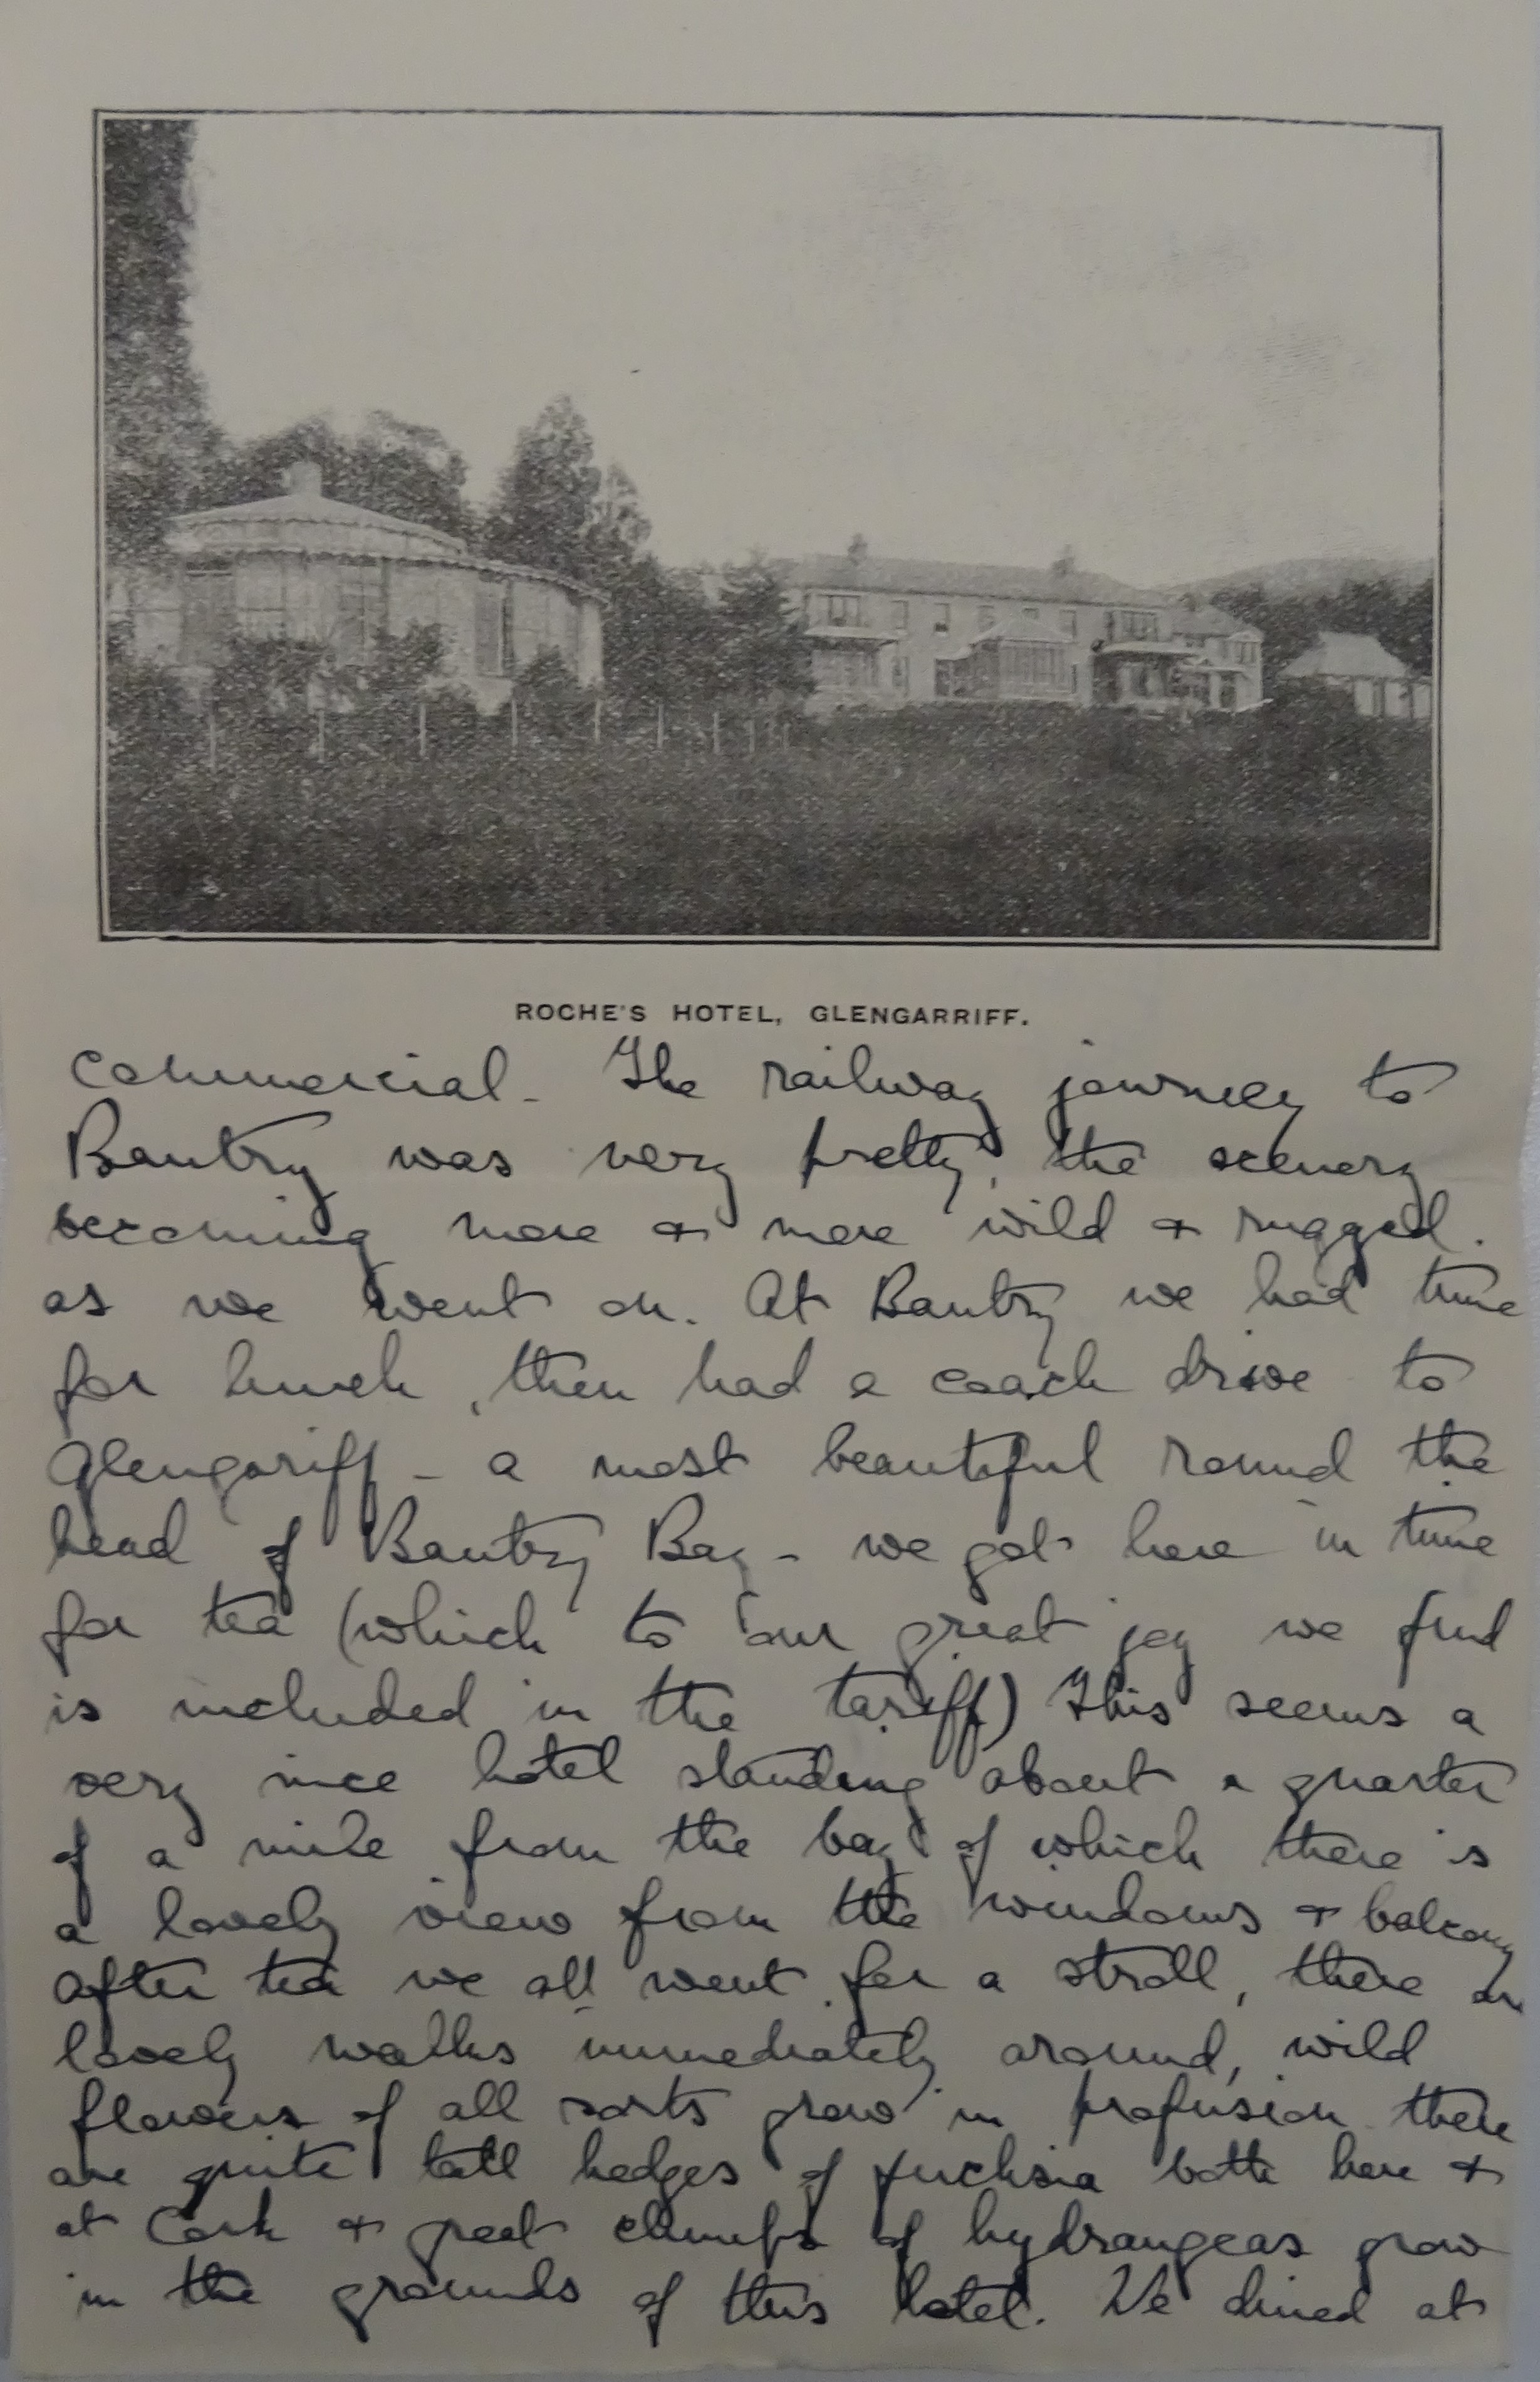 ROCHE'S HOTEL, GLENGARRIFF.
commercial - The railway journey to
Bantry was very pretty, the scenery
becoming more & more wild & rugged.
as we went on. At Bantry we had time
for lunch, then had a coach drive to
Glengariff - a most beautiful round the
head of Bantry Bay - we got here in time
for tea (which to our great joy we find
is included in the tariff) This seems a
very nice hotel standing about a quarter
of a mile from the bay of which there is
a lovely view from the windows & balcony
After tea we all went for a stroll, there are
lovely walks immediately around, wild
flowers of all sorts grow in profusion there
are quite tall hedges of fuchsia both here &
at Cork & great clumps of hydrangeas grow
in the grounds of this hotel. We dined at